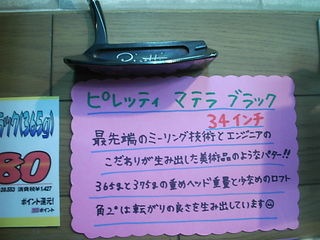 Piretti
ピレッティ マテラ ブラック
34インチ
最先端のミーリング技術とエンジニアの
こだわりが生み出した美術品のようなパター!!
365gと375gの重めヘッド重量と少なめのロフト
角2°は転がりの良さを生み出しています
ラック(365g)
80
消費税¥1,427
ポイント還元!